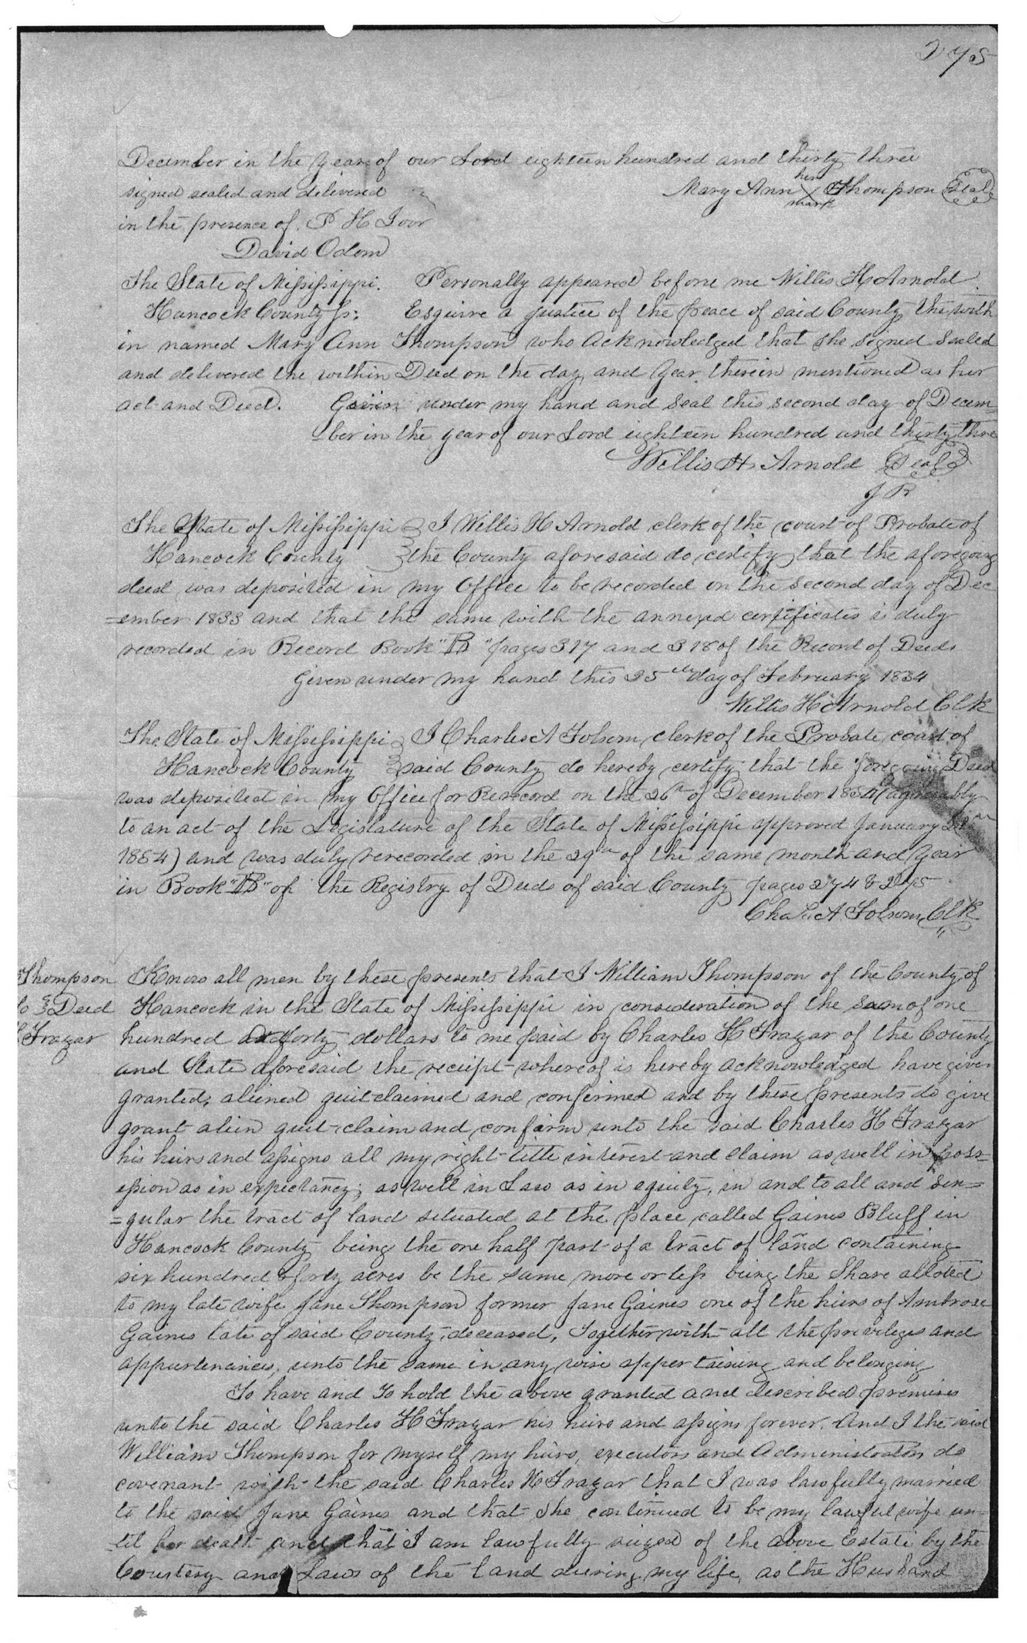 275
December in the year of our Lord eighteen hundred and thirty three
signed sealed and delivered Mary Ann his X mark Thompson Seal
in the presence of. P H
David Odom
The State of Mississippi. Personally appeared before me Willis H Arnold
Hancock County Ss: Esquire a Justice of the peace of said County the with
in named Mary Ann Thompson who acknowledged that she signed Sealed
and delivered the within Deed on the day and year therein mentioned as her
act and Deed. Given under my hand and Seal this second day of Decem-
ber in the year of our Lord eighteen hundred and thirty three
Willis H. Arnold Seal
J P
The State of Mississippi I Willis H Arnold clerk of the court of Probate of
Hancock County the County aforesaid do certify that the aforegoing
deed was deposited in my Office to be recorded on the second day of Dec
=ember 1833 and that the same with the annexed certificates is duly
recorded in Record Book "B" pages 317 and 318 of the Record of Deeds
Given under my hand this 25th day of February 1834
Willis H Arnold Clk
The State of Mississippi I Charles A Folsom, clerk of the Probate court of
Hancock County said County do hereby certify that the foregoing Deed
was deposited in my Office for Rerecord on the 26th of December 1854 (agreeably
to an act of the Legislature of the State of Mississippi approved January
1854) and was duly rerecorded in the 29th of the same month and year
in Book "B" of the Registry of Deeds of said County pages 274 & 275
Chas. A Folsom, Clk
Thompson Know all men by these presents that I William Thompson of the County of
to Deed Hancock in the State of Mississippi in consideration of the sum of one
Frazar hundred and forty dollars to me paid by Charles H Frazar of the County
and State aforesaid the receipt whereof is hereby acknowledged have given
granted, aliened quit claimed and confirmed and by these presents do give
grant alien quit-claim and confirm unto the said Charles H Frazar
his heirs and assigns all my right title interest and claim as well in poss=
ession as in expectancy; as well in Law as in equity, in and to all and Sin=
=gular the tract of land situated at the place called Gaines Bluff in
Hancock County being the one half part of a tract of land containing
six hundred & forty acres be the same more or less being the Share alloted
to my late wife Jane Thompson former Jane Gaines one of the heirs of Ambrose
Gaines late of said County, deceased, Together with all the privileges and
appurtenances, unto the same in any wise appertaining and belonging
To have and to hold the above granted and described premises
unto the said Charles H Frazar his heirs and assigns forever. And I the said
William Thompson for myself my heirs, executors and administrators do
covenant with the said Charles H Frazar that I was lawfully married
to the said Jane Gaines and that she continued to be my lawful wife un-
til her death and that I am lawfully seized of the above Estate by the
Courtesy and Laws of the land during my life, as the Husband